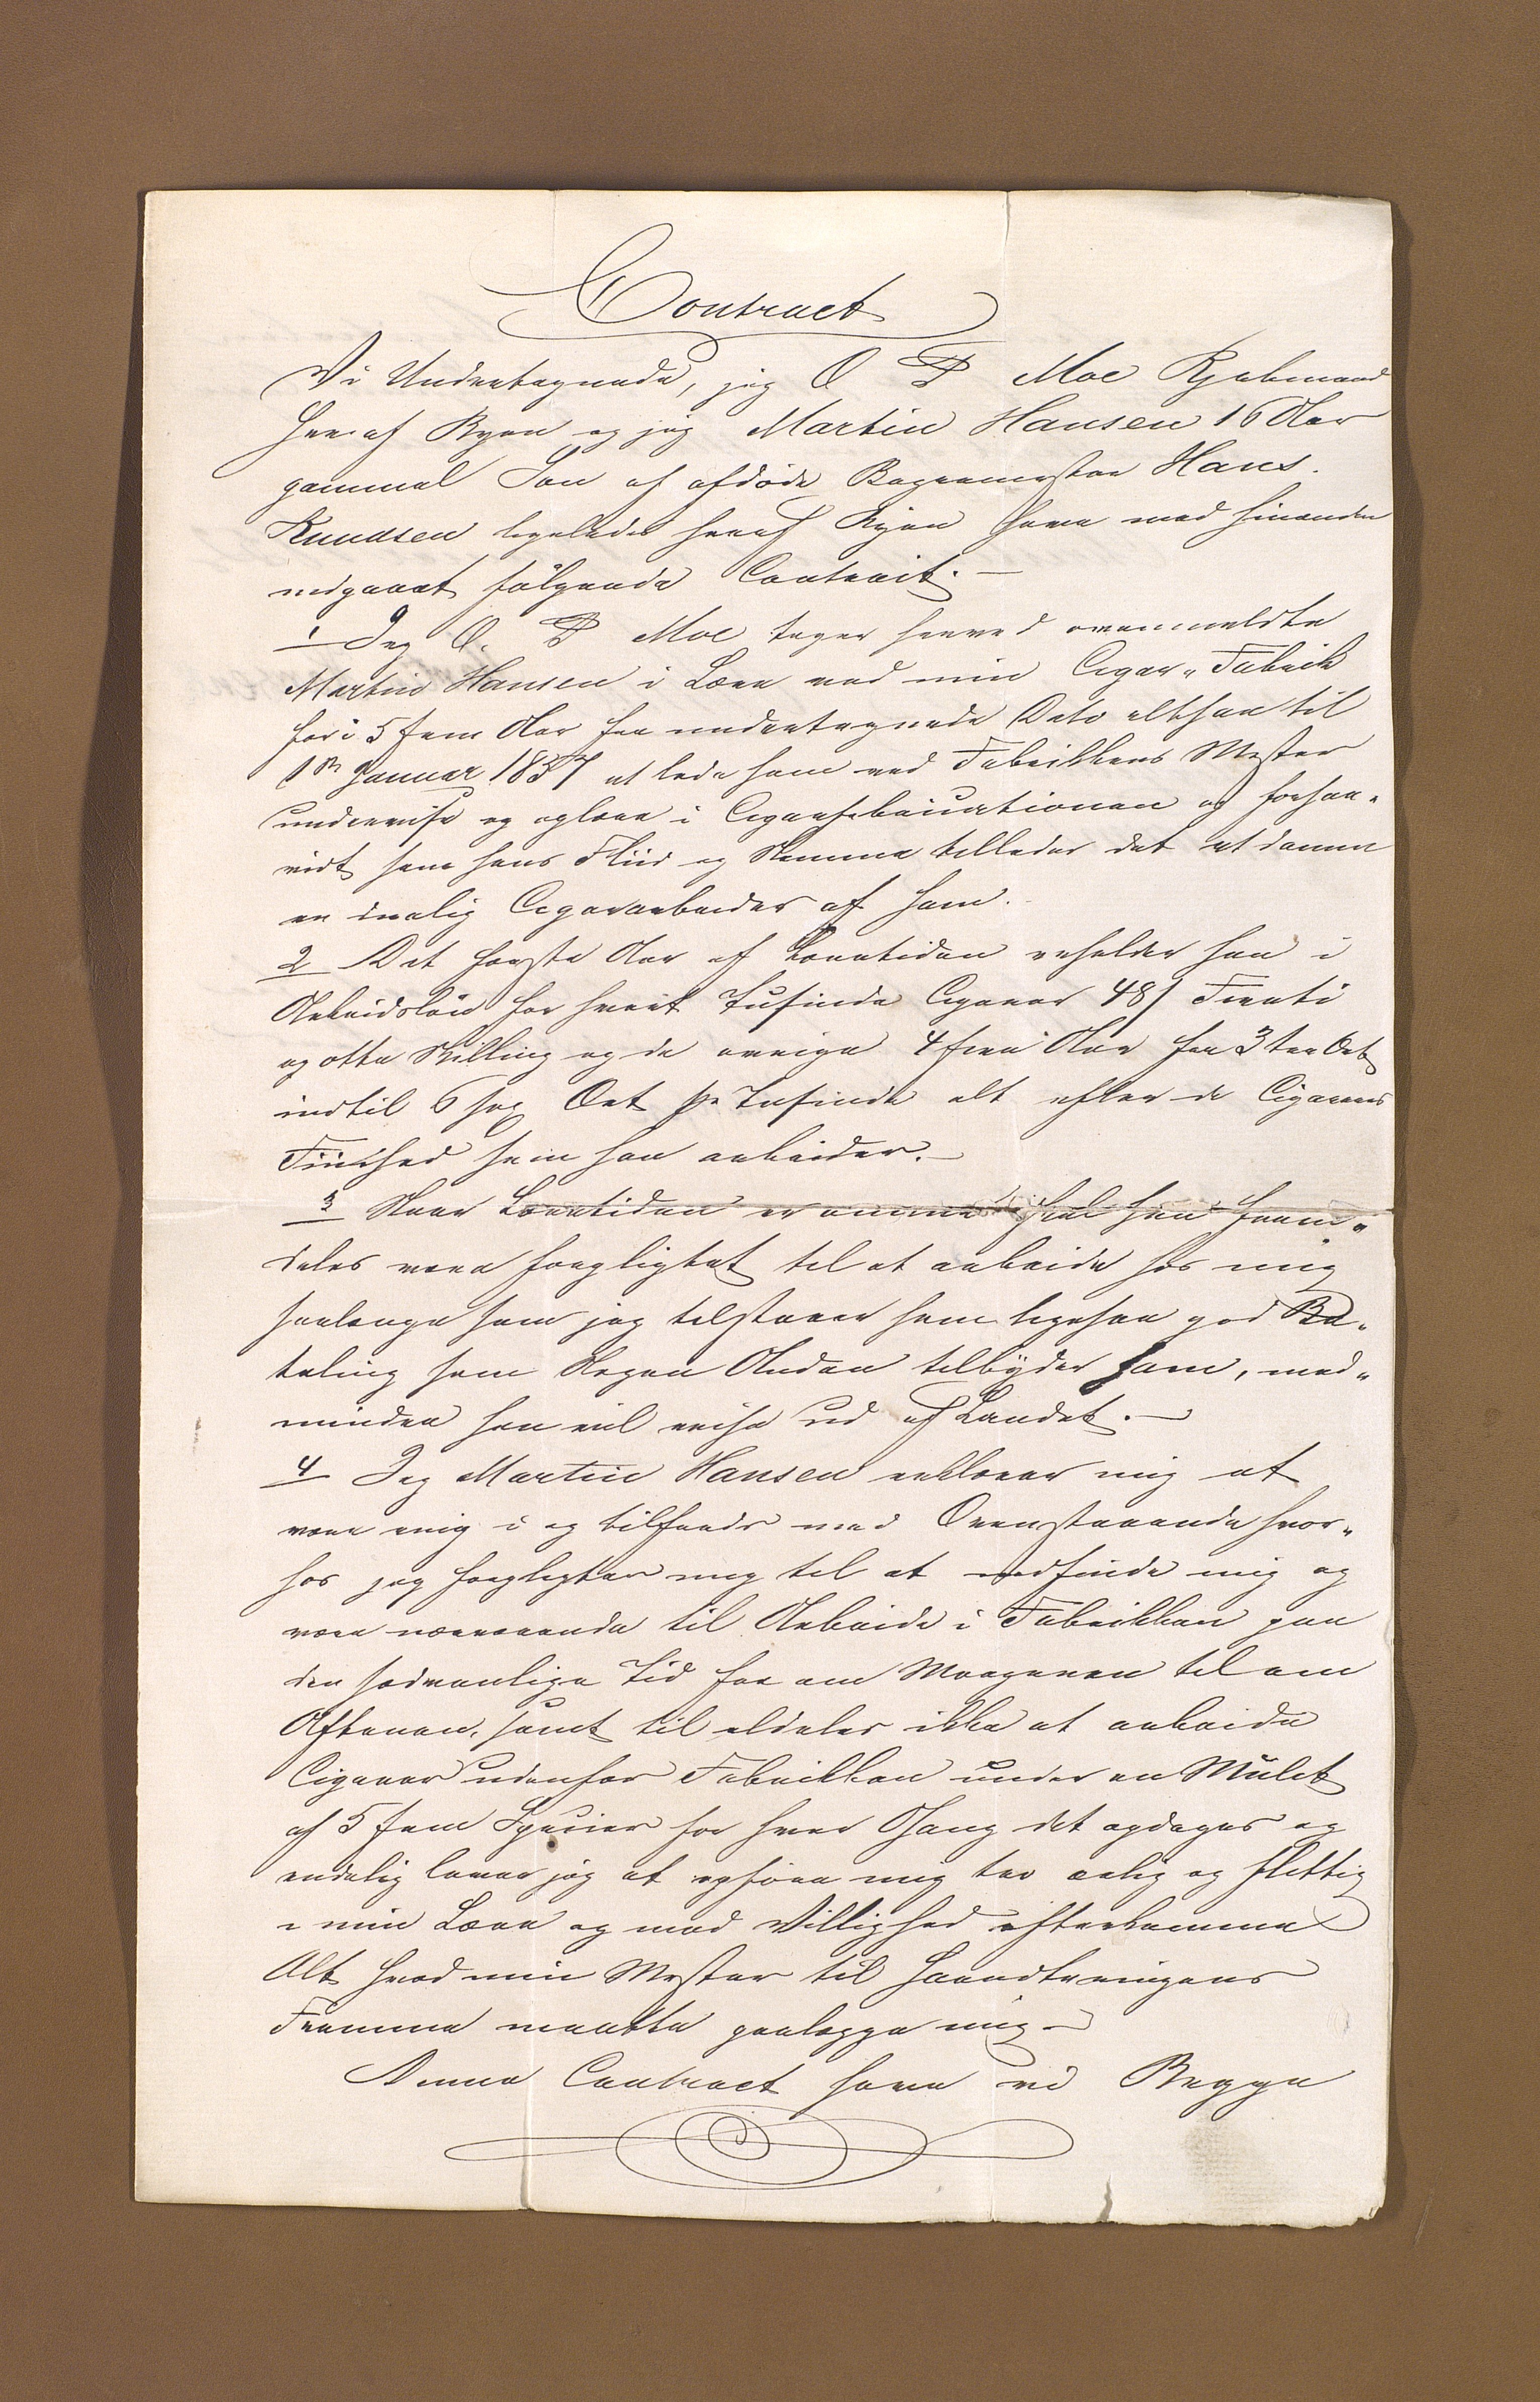 Contract
Vi Undertegnede, jeg O P Moe Kjøbmand
her af Byen og jeg Martin Hansen 16 Aar
gammel Søn af afdøde Bagermester Hans
Knudsen ligeledes heraf Byen have med hinanden
indgaaet følgende Contract. —
1 Jeg O. P Moe tager herved ovenmeldte
Martin Hansen i Lære ved min Cigar„Fabrik
for i 5 fem Aar fra undertegnede Dato altsaa til
1ste Januar 1857 at lade ham ved Fabrikkens Mester
undervise og oplære i Cigarfabricationen og forsaa„
vidt som hans Fliid og Nemme tillader det at danne
en duelig Cigararbeider af ham.
2 Det første Aar af Læretiden erholder han i
Arbeidsløn for hvert Tusinde Cigarer 48 ſ Fireti
og otte Skilling og de øvrige 4 fire Aar fra 3 tre Ort
indtil 6 sex Ort pr Tusinde alt efter de Cigarers
Fiinhed som han arbeider. —
3 Naar Læretiden er omme skal han frem„
deles være forpligtet til at arbeide hos mig
saalænge som jeg tilstaaer ham ligesaa god Be„
taling som Nogen Anden tilbyder ham, med„
mindre han vil reise ud af Landet. —
4 Jeg Martin Hansen erklærer mig at
være enig i og tilfreds med Ovenstaaende hvor„
hos jeg forpligter mig til at indfinde mig og
være nærværende til Arbeide i Fabrikken paa
den sædvanlige Tid fra om Morgenen til om
Aftenen, samt til aldeles ikke at arbeide
Cigarer udenfor Fabrikken under en Mulct
af 5 fem Specier for hver Gang det opdages og
endelig lover jeg at opføre mig tro ærlig og flittig
i min Lære og med Villighed efterkomme
Alt hvad min Mester til Haandteringens
Fremme maatte paalægge mig —
Denne Contract have vi Begge